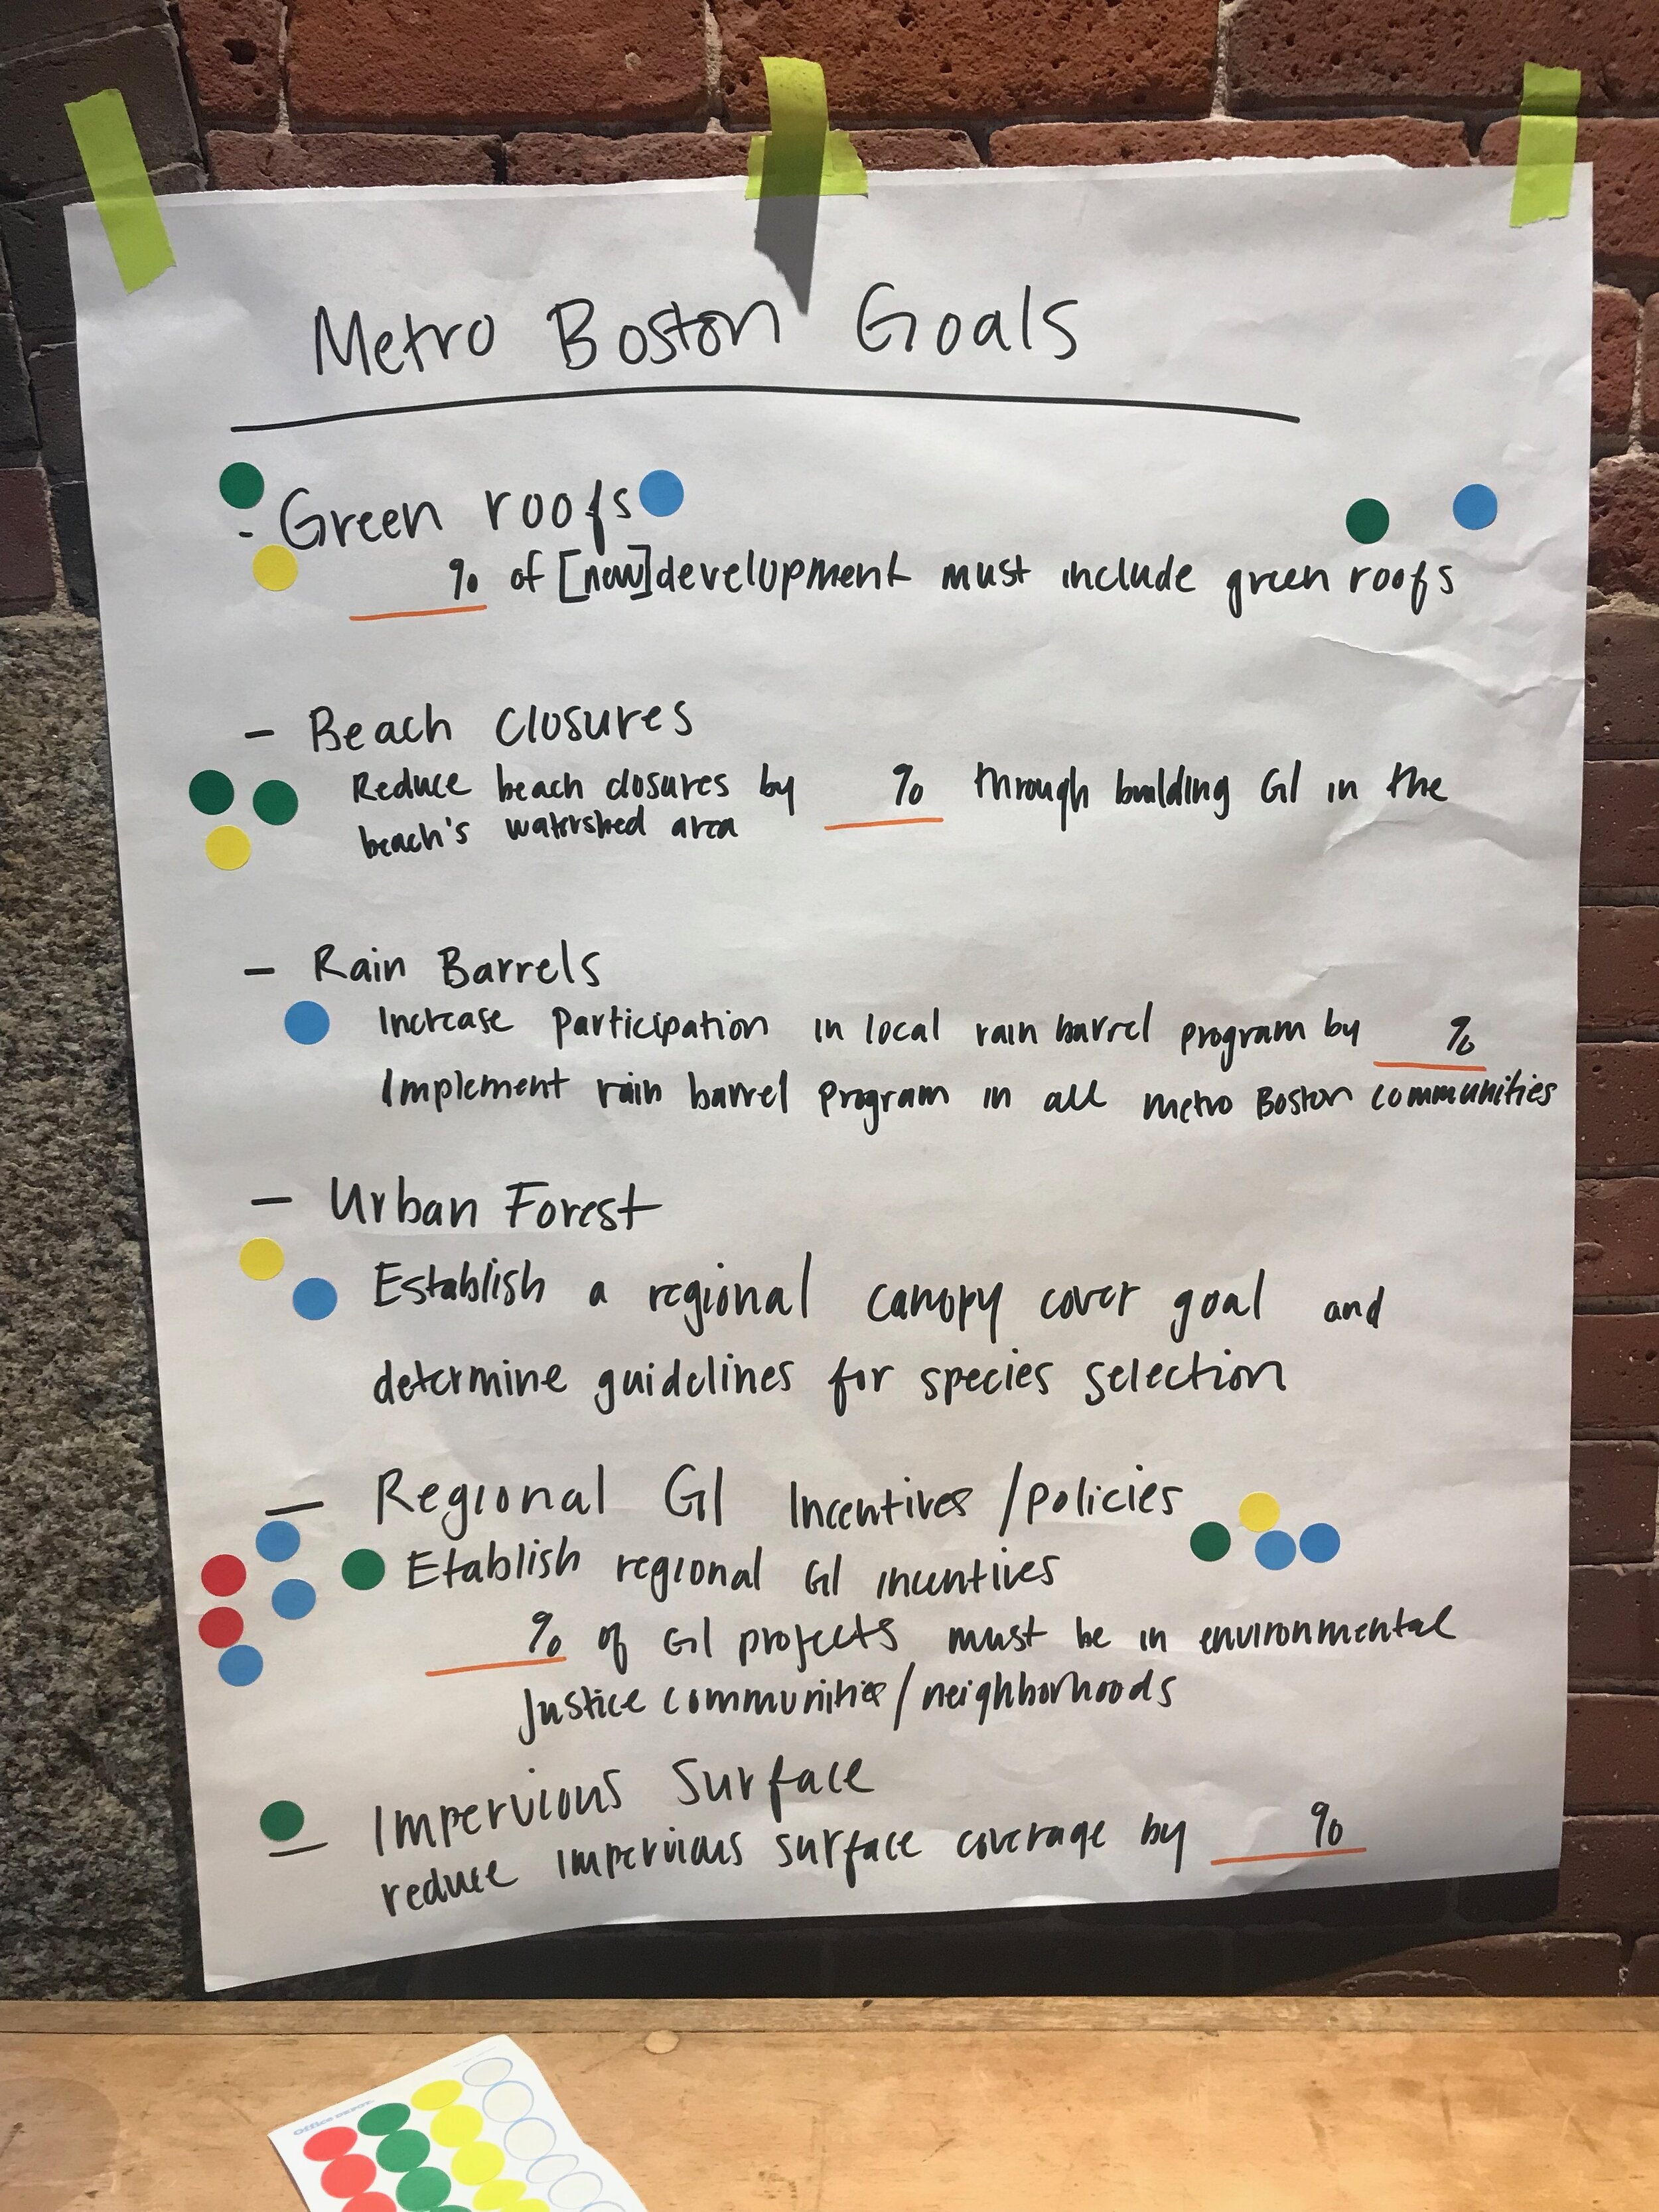 Metro Boston Goals
- Green roofs
% of [new] development must include green roofs
- Beach Closures
Reduce beach closures by % through building GI in the
beach's watershed area
- Rain Barrels
Increase participation in local rain barrel program by %
Implement rain barrel program in all metro Boston communities
- Urban Forest
Establish a regional canopy cover goal and
determine guidelines for species selection
- Regional GI Incentives/policies
Etablish regional GI incentives
% of GI projects must be in environmental
justice communities/neighborhoods
- Impervious Surface
reduce impervious surface coverage by %
Office DEPOT